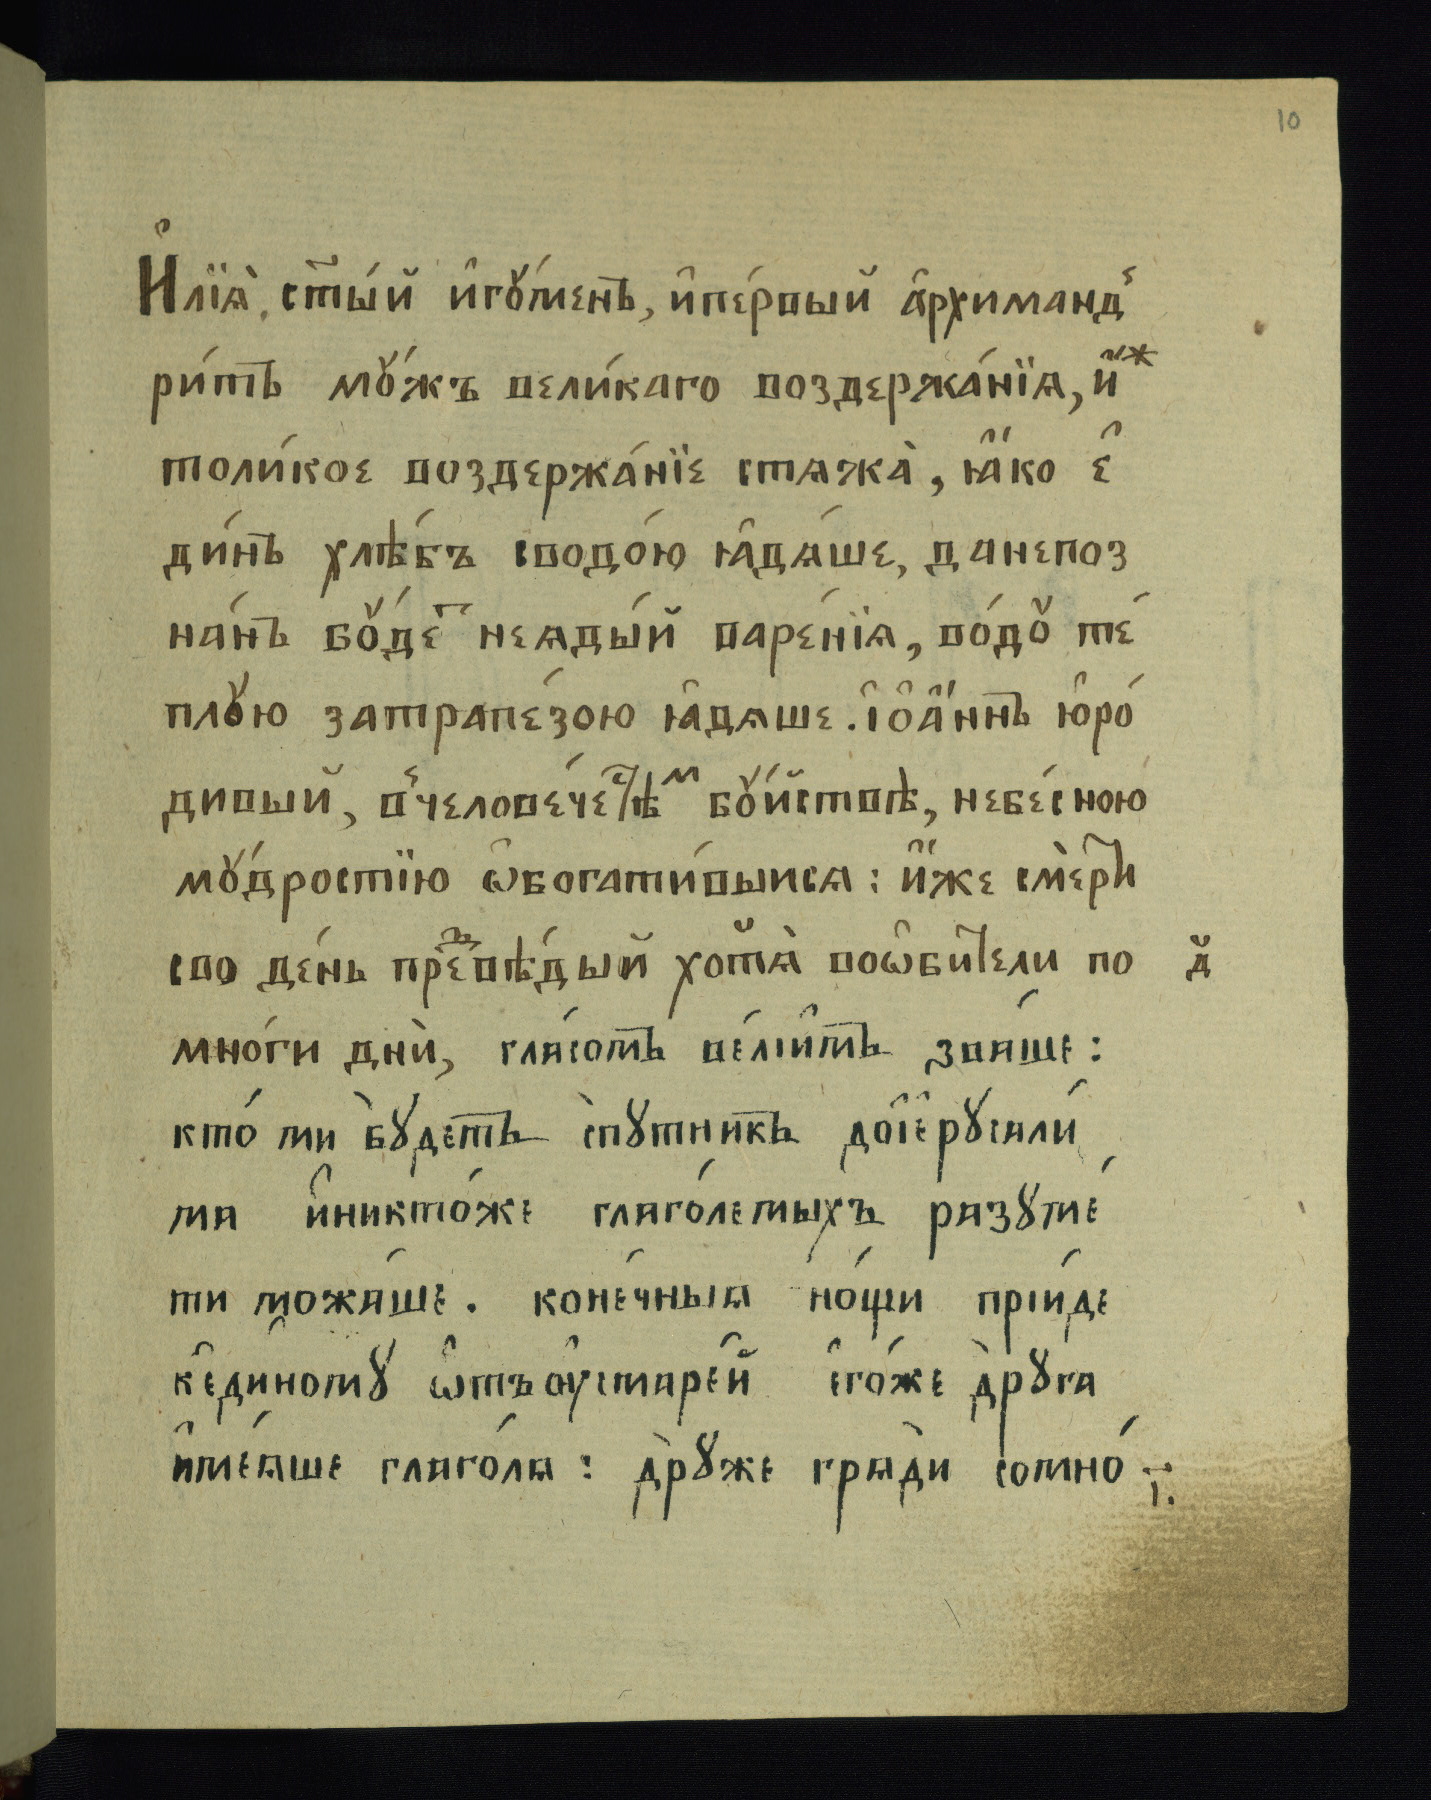 10
И҆лїѧ̀, ст҃ы́й и҆гꙋ́менъ, и҆пе́рвый а҆рхиманд
ри́тъ мꙋ́жъ вели́каго воздержа́нїѧ, и҆ж
толи́кое воздержа́нїе стѧжа̀, ꙗ҆́ко е҆
ди́нъ хлѣ́бъ сводо́ю ꙗ҆дѧ́ше, данепоз
на́нъ бꙋ́детъ неѧды́й варе́нїѧ, во́дꙋ те́
плꙋю затрапе́зою ꙗ҆дѧше. і҆ѻ҆а́ннъ ю҆ро́
дивый, в̾человѣ́честѣм бꙋ́йствѣ, небе́сною
мꙋ́дростїю ѡ҆богати́выисѧ: и҆́же сме́рти
сво де́нь пре́ѣвѣ́дый хотѧ̀ воѡ҆би́тели по д
мно́ги дни̇̀, гла́сомъ ве́лїимъ зва́ше:
кто́ ми бꙋ́детъ спꙋтникъ доі҆ерꙋсали́
ма и҆никто́же глаго́лемыхъ разꙋмѣ́
ти можа́ше. коне́чныѧ но́щи прїи́де
ке҆ди́номꙋ ѡ҆тъоу҆старе́й е҆го́же дрꙋга
и҆ме́ѧше глаго́лѧ: дрꙋже грѧди сомно́ і.